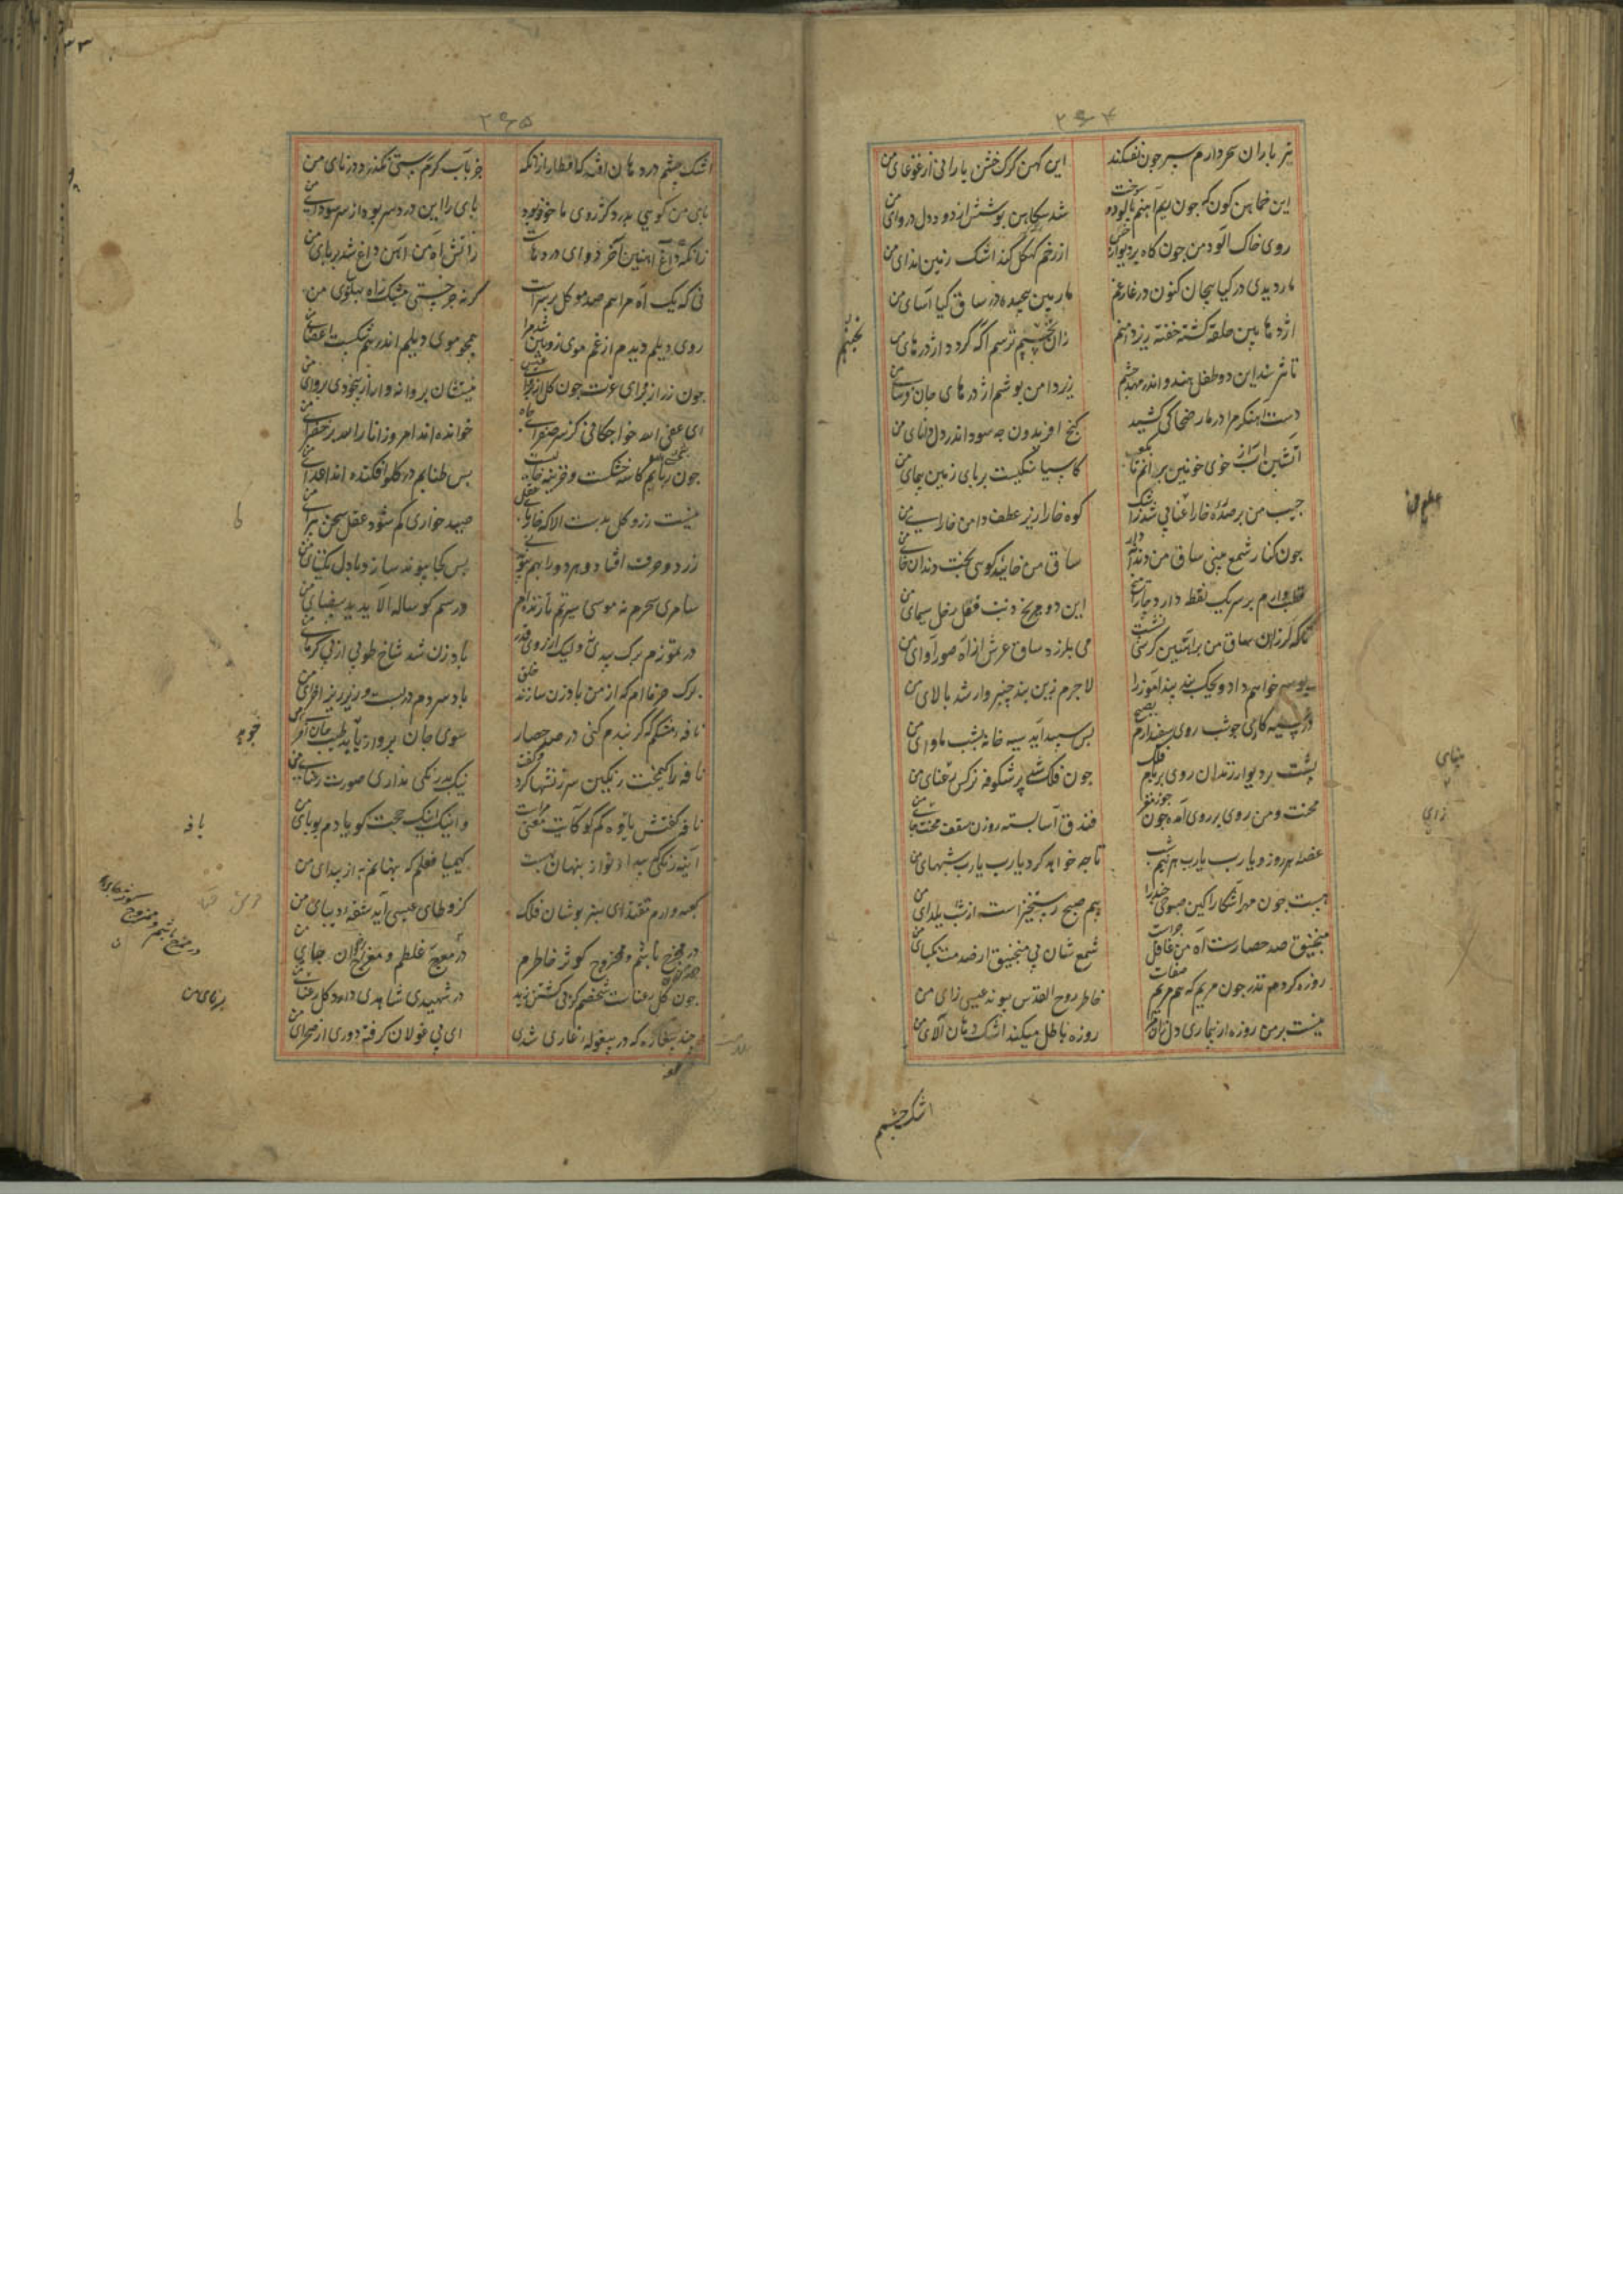 ۲۶۴
تیر باران سحر دارم سپر چون نفکند
این کهن گرک خشن بارانی از غوغای من
این خماهن کون که چون ریم آهنم پالود و سوخت
شد سکاهن پوشش از دود دل دروای من
روی خاک آلود من چون کاه بر دیوار حبس
از رخم کهکل کند اشک زمین اندای من
مار دیدی در کیا پیچان کنون در غار غم
مار بین پیچیده در ساق کیا آسای من
اژدها بین حلقه کشته خفته زیر دامنم
زان نجنبم ترسم آکه کردد اژدرهای من
تا نترسند این دو طفل هندو اندر مهد چشم
زیر دامن پوشم اژدرهای جان فرسای من
دست آهنکر مرا در مار ضحاکی کشید
کنج افریدون چه سود اندر دل دانای من
آتشین آب از خوی خونین برانم تا بکعب
کاسیا سنکیست بر پای زمین پیمای من
جیب من بر صدره خارا عتابی شد ز اشک
کوه خارا زیر عطف دامن خارای من
چون کنار شمع بینی ساق من دندانه دار
ساق من خائید کوئی بخت دندان خای من
قطب وارم بر سر یک نقطه دارد چار میخ
این دو مریخ ذنب فعل زحل سیمای من
تا که لرزان ساق من بر آهنین کرسی نشست
می بلرزد ساق عرش از آه صور آوای من
بوسه خواهم داد ویحک بند پند آموز را
لاجرم زین بند چنبر وار شد بالای من
در سیه کاری چو شب روی سپید آرم چو صبح
پس سپید آید سیه خانه بشب ماوای من
پشت بر دیوار زندان روی بر بام فلک
چون فلک شد پر شکوفه نرکس رعنای من
محنت و من روی در روی آمده چون جوز مغز
فندق آسا بسته روزن سقف محنت جای من
غصه هر روز و یارب یارب هر نیم شب
تا چه خواهد کرد یارب یارب شبهای من
هست چون صبح آشکارا کین صبوحی چند را
بیم صبح رستخیزست از شب یلدای من
منجنیق صد حصارست آه من غافل چراست
شمع شان پی منجنیق از صدمت نکبای من
روزه کردم نذر چون مریم که هم مریم صفات
خاطر روح القدس پیوند عیسی زای من
نیست بر من روزه در بیماری دل زان مرا
روزه باطل میکند اشک دهان آلای من
نجنبم
زای
اشک چشم
۲۶۵
اشک چشم در دهان افتد که افطار از آنکه
جز بآب کرم چیزی نکذرد در نای من
پای من کوئی بدرد کژروی ماخوذ بود
پای را این درد سر بود از سر سودای من
زانکه داغ آهنین آخر دوای دردهاست
ز آتش آه من آهن داغ شد بر پای من
نی که یک آه مرا هم صد موکل بر سرست
کر نه چرخستی مشبک ز آه پهلوی من
روی دیلم دیدم از غم موی زوبین شد مرا
همچو موی دیلم اندر هم شکست اعضای من
چون زر از مرای عزت چون کل از مرای عیسی
نیستشان پروانه وار از بیخودی پروای من
ای عفی الله خواجکانی کز سر صفرای جاه
خوانده اند امروز اناالله بر صفرای من
چون ربابم کاسه خشکست و خزینه خالیست
پس طنابم در کلو افکنده اند اعدای من
نیست زر و کل بدستم الا که خار پای عقل
صید خاری کم شود عقل سخن پیرای من
زر دو حرف افتاد و هر دو را بهم پیوند نی
پس کجا پیوند سازد با دل یکتای من
سامری سیرم نه موسی سیرت ار تا زنده ام
در سم کوساله آلاید ید بیضای من
در تموزم برک بیدی نه ولیک از روی قدر
بادزن شد شاخ طوبی از پی کرمای من
برک خرماام که از من بادزن سازند خلق
باد سردم در لبست و ریز ریز اجزای من
نافه مشکم که کر بندم کنی در صد حصار
سوی جان پرواز یابد طیب جان افزای من
نافه را کیمخت رنکین سرزنشها کرد و کفت
نیک بدرنکی نداری صورت زیبای من
نافه کفتش یاوه کم کو کآیت معنی مراست
و اینک اینک حجت کویا دم بویای من
آینه رنکی که پیدا تو از پنهان بهست
کیمیا فعلم که پنهانم به از پیدای من
کعبه وارم مقتدای سبز پوشان فلک
کز وطای عیسی آید شقه دیبای من
در ممزج باشم و ممزوج کوثر خاطرم
در معرج غلطم و معراج رضوان جای من
چون کل رعناست شخصم کز پی کشتن زید
در شهیدی شاهدی دارد کل رعنای من
چند بیغاره که در بیغوله غاری شدی
ای پی غولان کرفته دوری از صحرای من
بافه